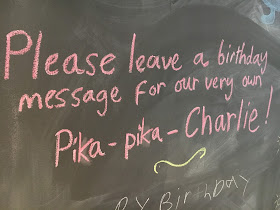 Please leave a birthday
message for our very own
Pika-pika-Charlie!
BIRTHDAY